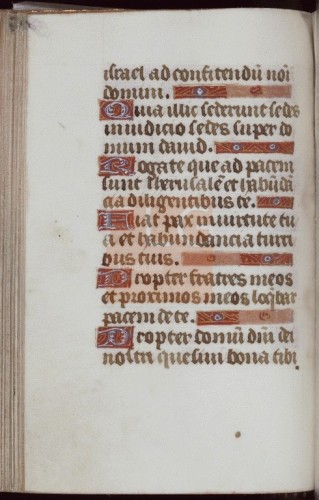 israel ad confitendū noī
domini.
Quia illic sederunt sedes
in iudicio sedes super do
mum dauid.
Rogate que ad pacem
sunt iherusalē et habūdā
cia diligentibus te.
Fiat pax in uirtute tu
a et habundancia turri
bus tuis.
Propter fratres meos
et proximos meos loq̄bar
pacem de te.
Propter domū dn̄i dei
nostri quesiui bona tibi.